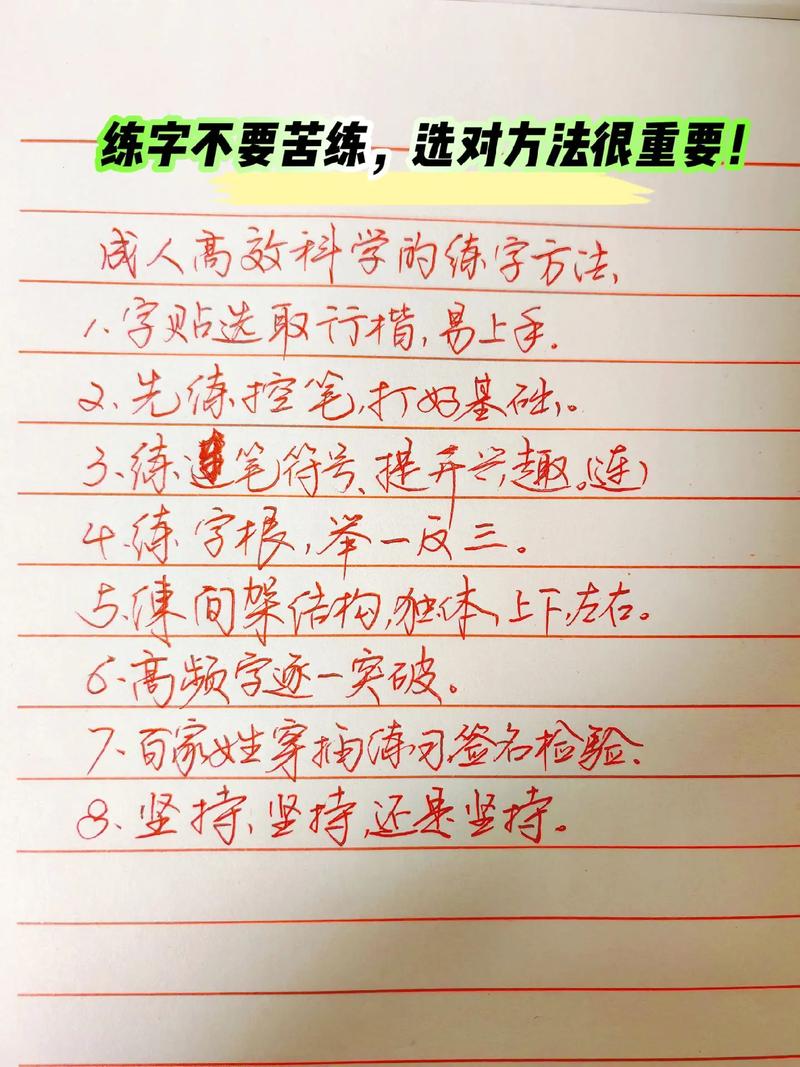 练字不要苦练，选对方法很重要！
成人高效科学的练字方法、
1、字贴选取行楷，易上手.
2、先练控笔，打好基础。
3、练连笔符号、提升兴趣。(连)
4、练字根，举一反三。
5、练间架结构，独体，上下，左右。
6、高频字逐一突破。
7、百家姓穿插练习，签名检验.
8、坚持、坚持，还是坚持。